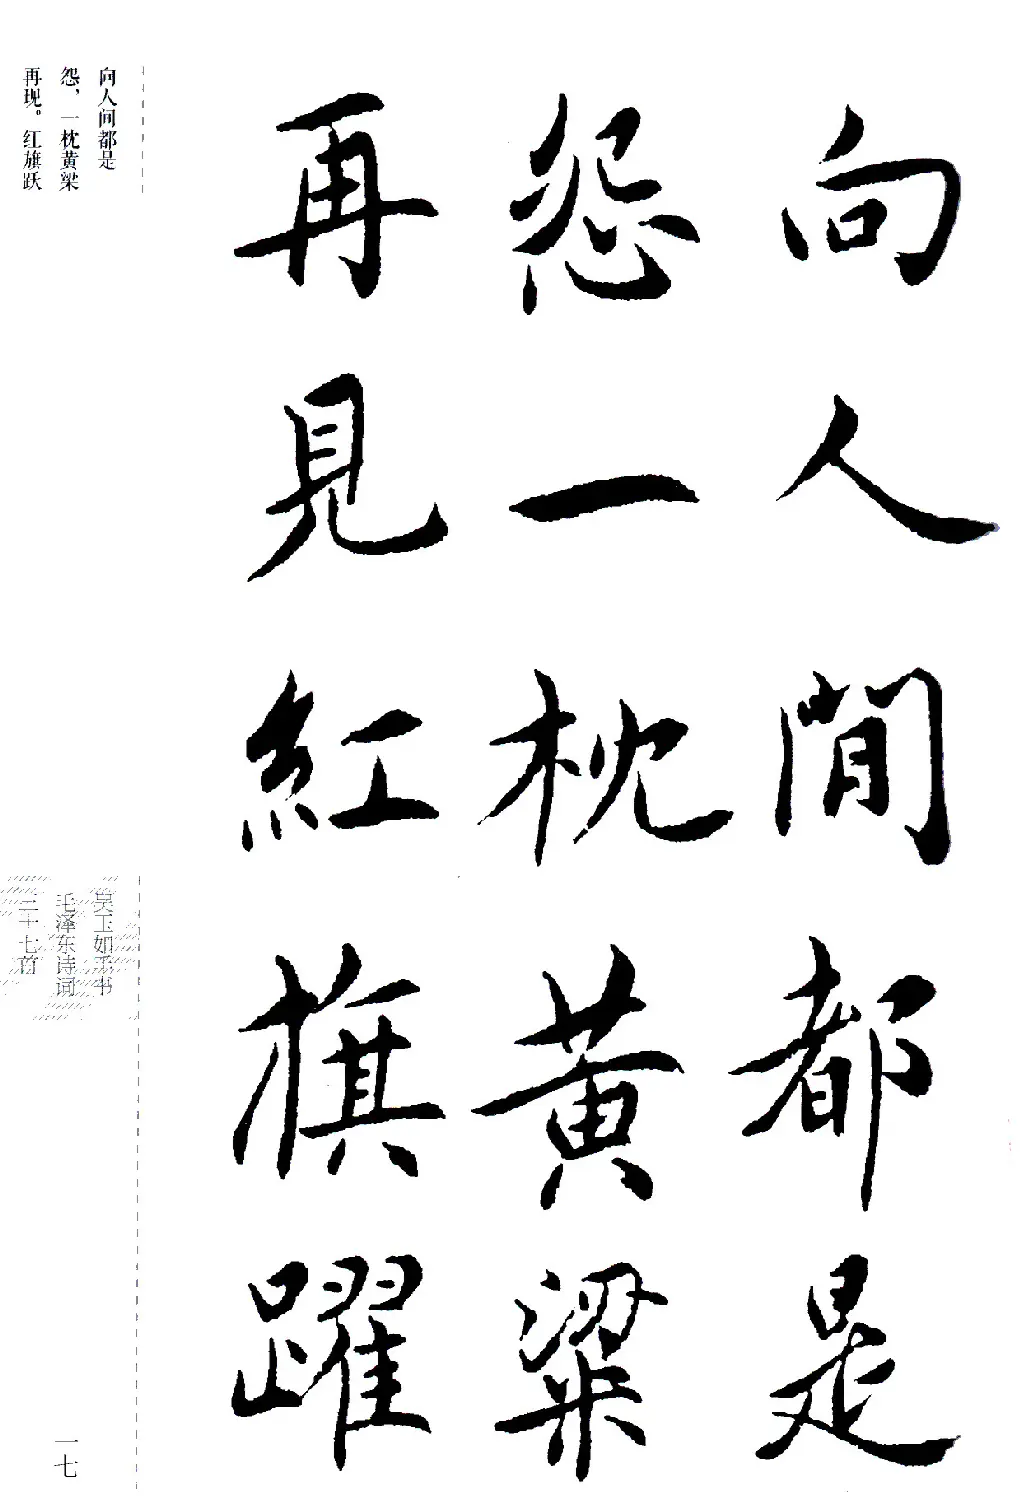 向人間都是
怨一枕黄粱
再見紅旗躍
向人间都是
怨，一枕黄粱
再现。红旗跃
吴玉如手书
毛泽东诗词
三十七首
一七